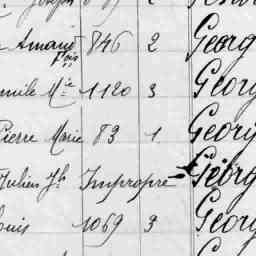 Amand 846 2 Georg
fois
mile Mie 1120 3 Georg
Pierre Marie 83 1 Georg
Julien Jh Impropre Georg
ouis 1069 3 Georg